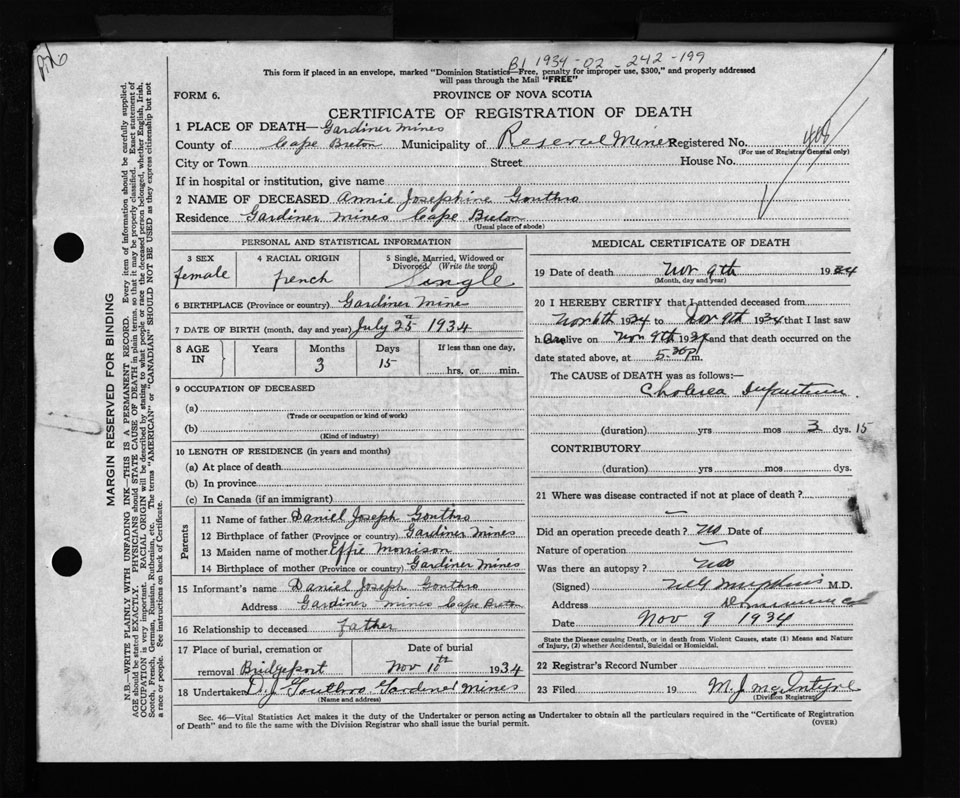 B1 1934-02-242-199
This form if placed in an envelope, marked "Dominion Statistics—Free, penalty for improper use, $300," and properly addressed
will pass through the Mail "FREE"
FORM 6.
PROVINCE OF NOVA SCOTIA
CERTIFICATE OF REGISTRATION OF DEATH
1 PLACE OF DEATH— Gardiner Mines
County of Cape Breton Municipality of Reserve Mines Registered No.
(For use of Registrar General only)
City or Town Street House No.
If in hospital or institution, give name
2 NAME OF DECEASED Annie Josephine Gouthro
Residence Gardiner Mines Cape Breton
(Usual place of abode)
MARGIN RESERVED FOR BINDING
N.B.—WRITE PLAINLY WITH UNFADING INK—THIS IS A PERMANENT RECORD. Every item of information should be carefully supplied.
AGE should be stated EXACTLY. PHYSICIANS should STATE CAUSE OF DEATH in plain terms, so that it may be properly classified. Exact statement of
OCCUPATION is very important. RACIAL ORIGIN will be described by stating to what people or race the deceased person belonged, whether English, Irish,
Scotch, French, German, Russian, Ruthenian, etc. The terms "AMERICAN" or "CANADIAN" SHOULD NOT BE USED as they express citizenship but not
a race or people. See instructions on back of Certificate.
PERSONAL AND STATISTICAL INFORMATION
3 SEX
female
4 RACIAL ORIGIN
french
5 Single, Married, Widowed or
Divorced. (Write the word)
Single
6 BIRTHPLACE (Province or country) Gardiner Mines
7 DATE OF BIRTH (month, day and year) July 25th 1934
8 AGE IN
Years Months Days If less than one day,
3 15 hrs. or min.
9 OCCUPATION OF DECEASED
(a)
(Trade or occupation or kind of work)
(b)
(Kind of industry)
10 LENGTH OF RESIDENCE (in years and months)
(a) At place of death
(b) In province
(c) In Canada (if an immigrant)
Parents
11 Name of father Daniel Joseph Gouthro
12 Birthplace of father (Province or country) Gardiner Mines
13 Maiden name of mother Effie Morrison
14 Birthplace of mother (Province or country) Gardiner Mines
15 Informant's name Daniel Joseph Gouthro
Address Gardiner Mines Cape Breton
16 Relationship to deceased father
17 Place of burial, cremation or Date of burial
removal Bridgeport Nov 10th 1934
18 Undertaker D.J. Gouthro Gardiner Mines
(Name and address)
MEDICAL CERTIFICATE OF DEATH
19 Date of death Nov 9th 1934
(Month, day and year)
20 I HEREBY CERTIFY that I attended deceased from
Nov 6th 1934 to Nov 9th 1934 that I last saw
h er alive on Nov 9th 1934 and that death occurred on the
date stated above, at 5-30 p m.
The CAUSE of DEATH was as follows:—
Cholera Infantum
(duration) yrs mos 3 dys. 15
CONTRIBUTORY
(duration) yrs mos dys.
21 Where was disease contracted if not at place of death?
—
Did an operation precede death? No Date of
Nature of operation —
Was there an autopsy? No
(Signed) M.D.
Address Dominion
Date Nov 9 1934
State the Disease causing Death, or in death from Violent Causes, state (1) Means and Nature
of Injury, (2) whether Accidental, Suicidal or Homicidal.
22 Registrar's Record Number
23 Filed 19 M. J. McIntyre
(Division Registrar)
Sec. 46—Vital Statistics Act makes it the duty of the Undertaker or person acting as Undertaker to obtain all the particulars required in the "Certificate of Registration
of Death" and to file the same with the Division Registrar who shall issue the burial permit.
(OVER)